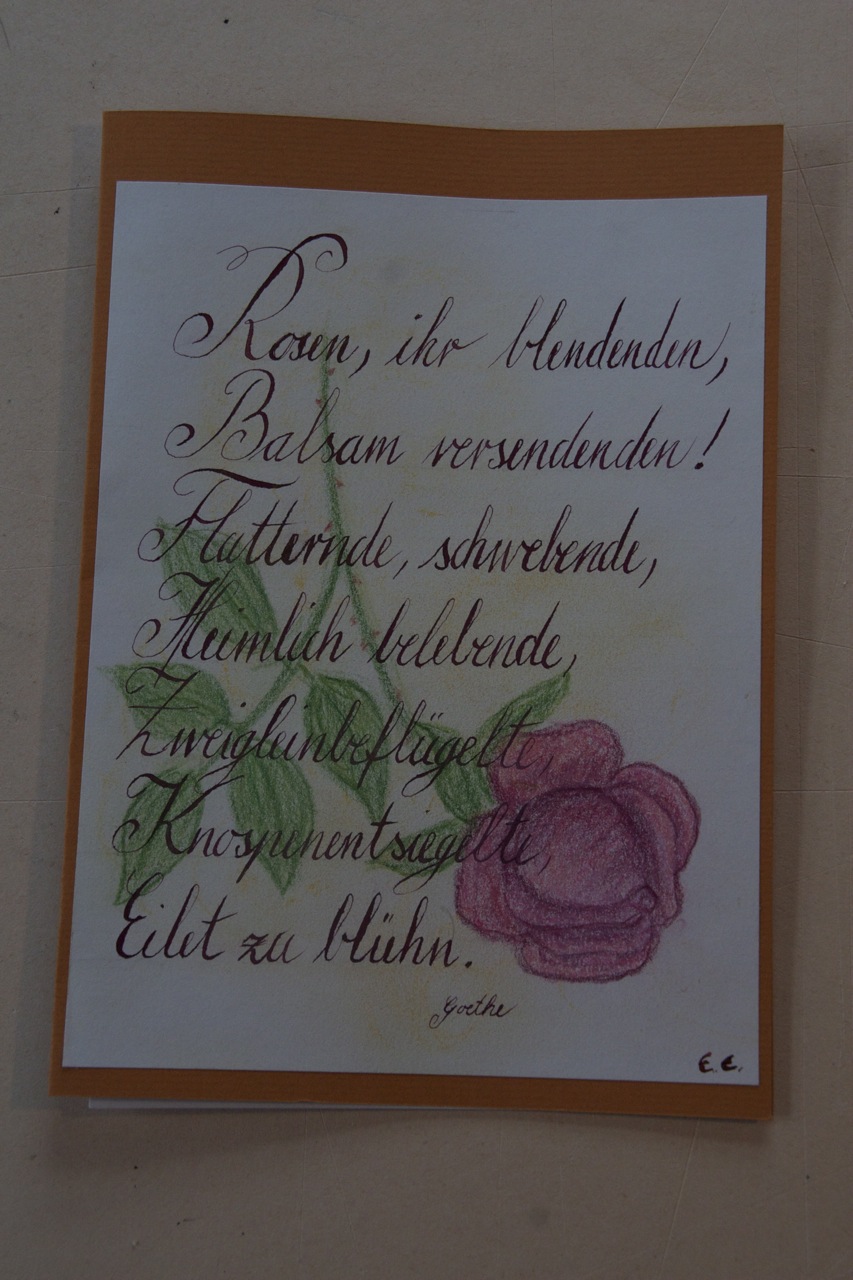 Rosen, ihr blendenden,
Balsam versendenden!
Flatternde, schwebende,
Heimlich belebende,
Zweigleinbeflügelte,
Knospenentsiegelte,
Eilet zu blühn.
Goethe
E. E.